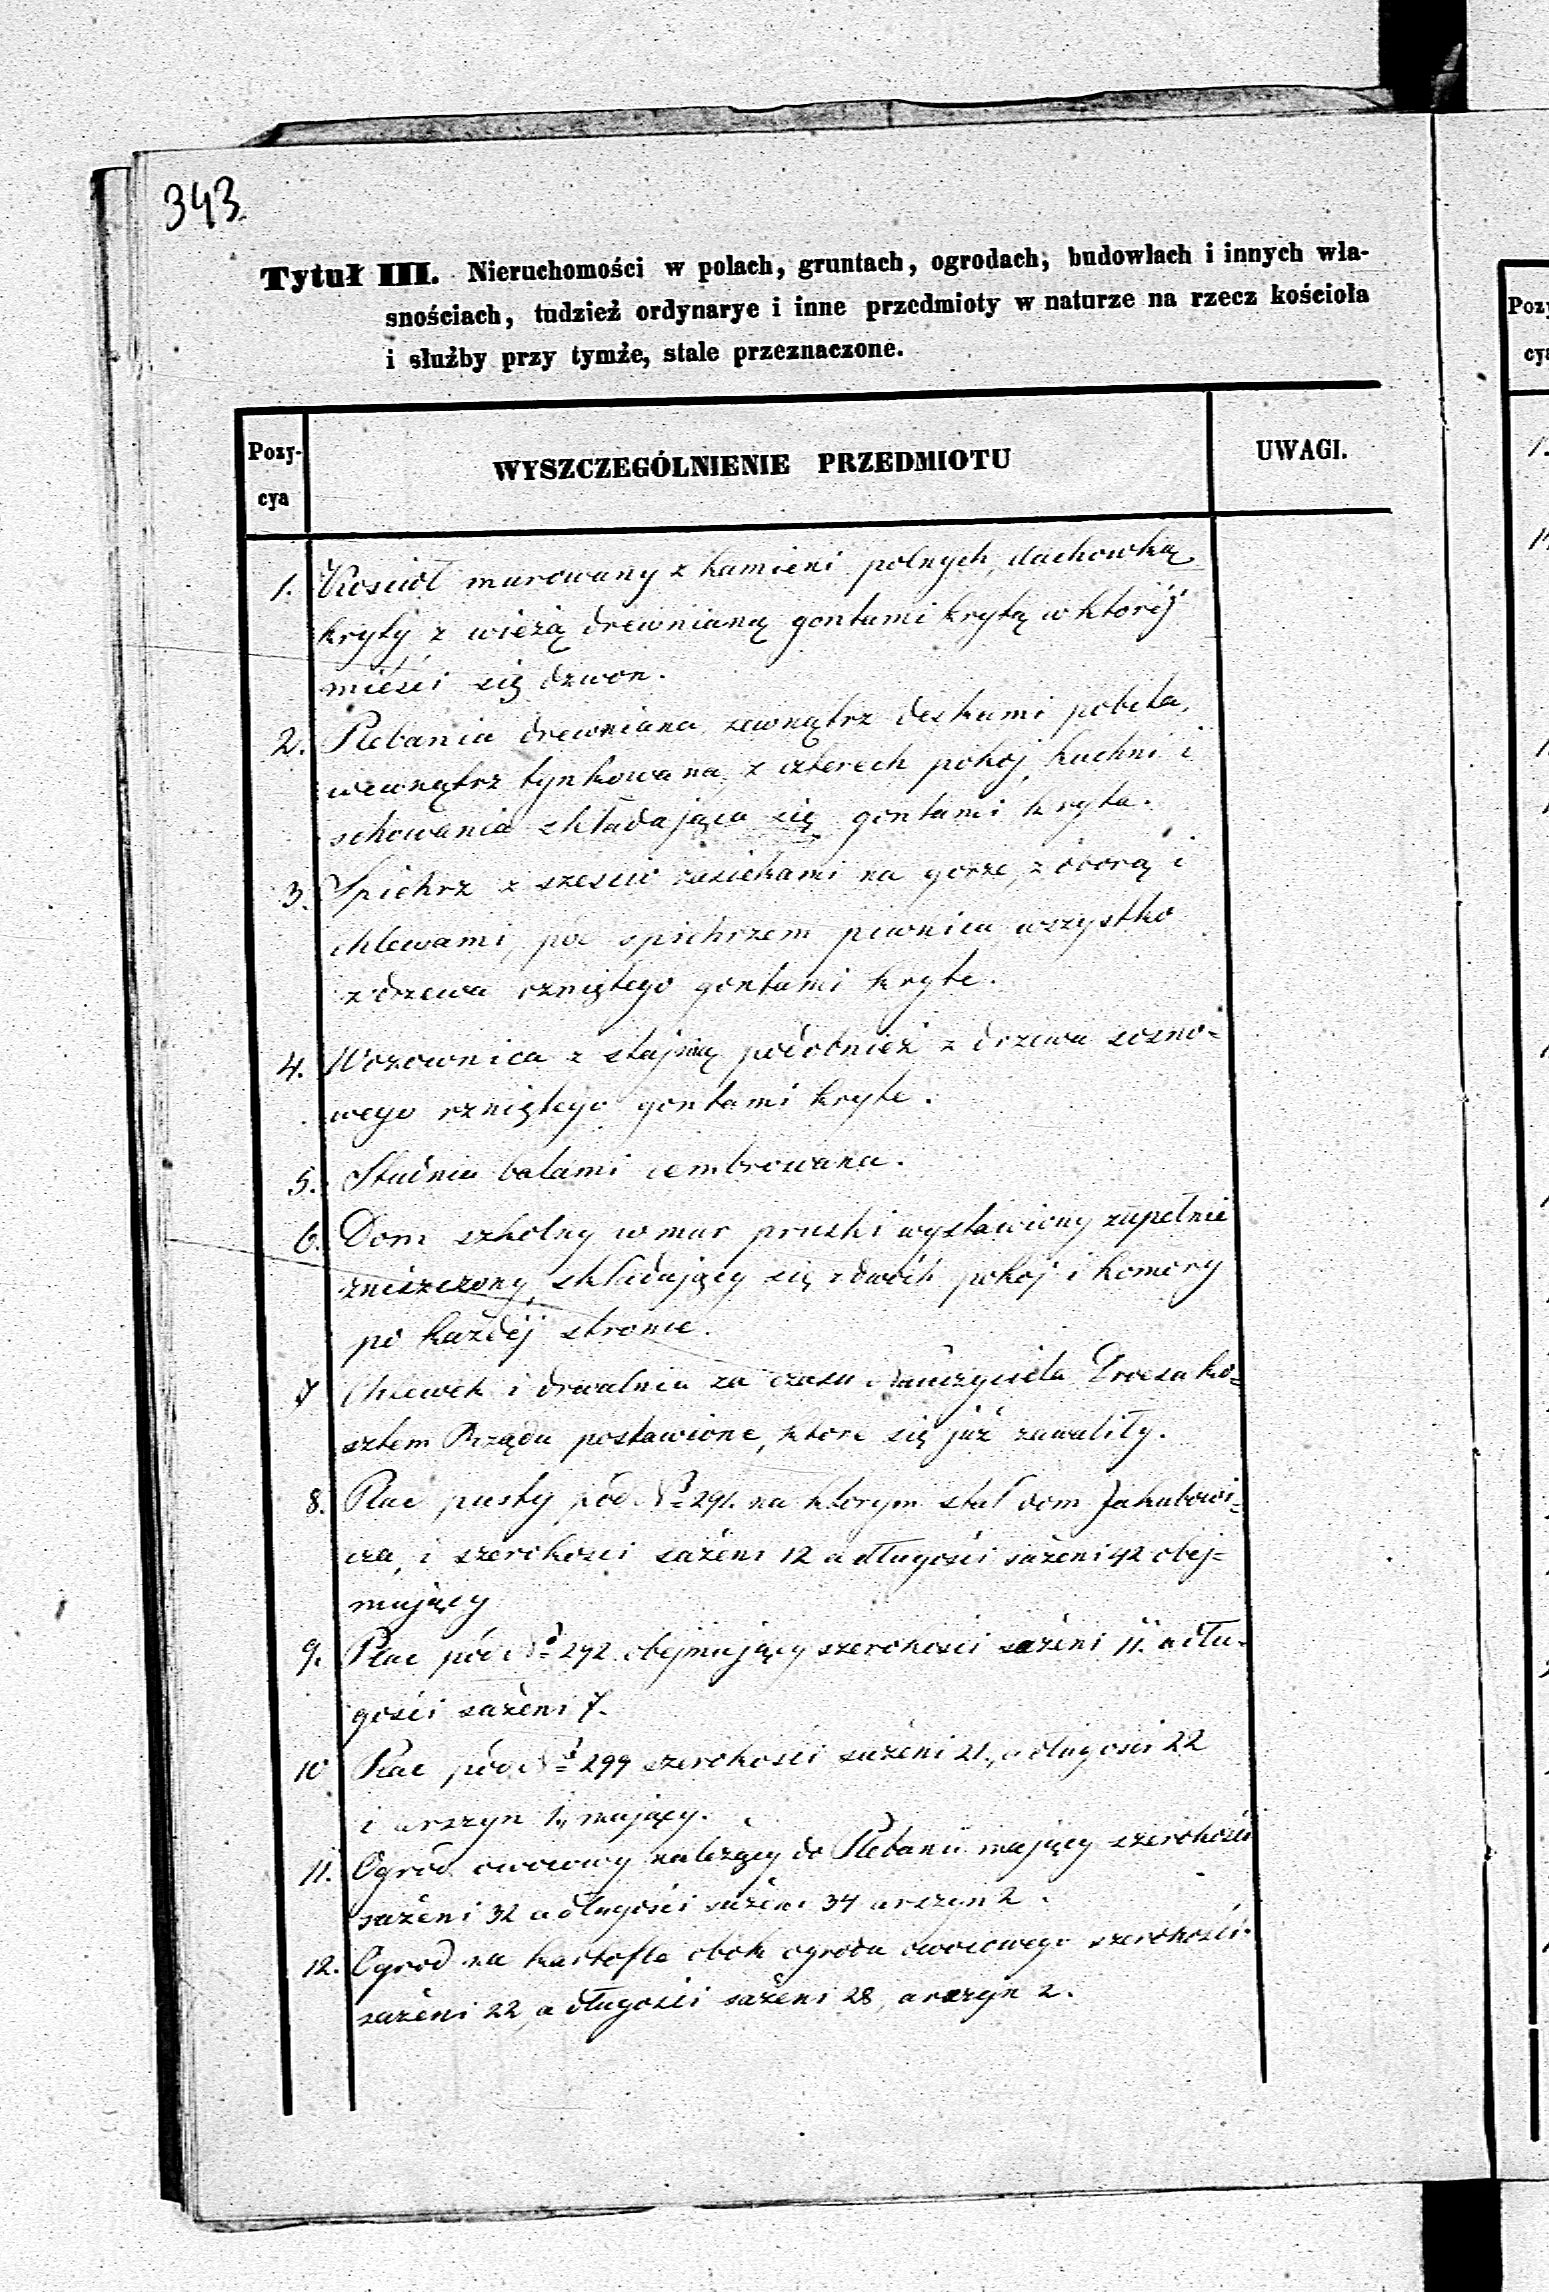 343.
Tytuł III. Nieruchomości w polach, gruntach, ogrodach, budowlach i innych wła-
snościach, tudzież ordynarye i inne przedmioty w naturze na rzecz kościoła
i służby przy tymże, stale przeznaczone.
Pozy-
cya
WYSZCZEGÓLNIENIE PRZEDMIOTU
UWAGI.
1. Kościoł murowany z kamieni polnych, dachowką
kryty z wieżą drewnianą gontami krytą w ktoréj
mieści się dzwon.
2. Plebania drewniana, zewnątrz deskami pobita,
wewnątrz tynkowana, z czterech pokoj, kuchni i
schowania składająca się gontami kryta.
3. Spichrz z sześciu zasiekami na gorze, z oborą i
chlewami, pod spichrzem piwnica wszystko
z drzewa rzniętego gontami kryte.
4. Wozownica z stajnią podobnież z drzewa sosno-
wego rzniętego gontami kryte.
5. Studnia balami cembrowana.
6. Dom szkolny w mur pruski wystawiony zupełnie
zniszczony, składający się z dwóch pokoj i komory
po każdéj stronie.
7 Chlewek i drwalnia za czasu Nauczyciela ko-
sztem Rządu postawione, ktore się już zawaliły.
8. Plac pusty pod No 291. na ktorym stał dom Jakubowi-
cza, i szerokosci sażeni 12 a długości sażeni 42 obej-
mujący
9. Plac pod No 292 obejmujący szerokości sażeni 11. a dłu-
gości sażeni 7.
10 Plac pod No 299 szerokości sażeni 21, a długości 22
i arszyn 1, mający.
11. Ogrod owocowy należący do Plebanii mający szerokości
sażeni 32 a długości sażeni 34 arszyn 2.
12. Ogrod na kartofle obok ogrodu owocowego szerokości
sażeni 22, a długości sażeni 28, arszyn 2.
Pozy
cya